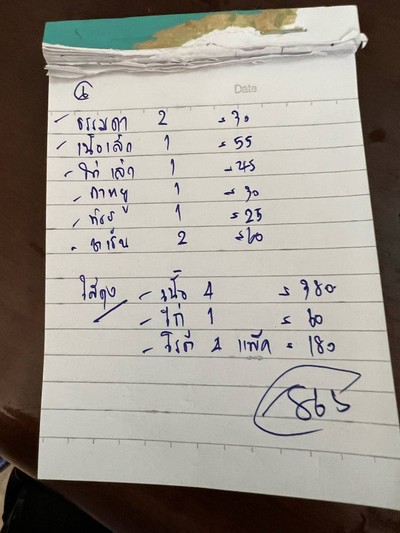 Date
- ธรรมดา 2 = 70
- เนื้อเล็ก 1 = 55
- ไก่ เล็ก 1 = 45
- 1 = 30
- 1 = 25
- 2 = 60
ใส่ถุง - เนื้อ 4 = 380
- ไก่ 1 = 60
- โรตี 4 แพ็ค = 180
865